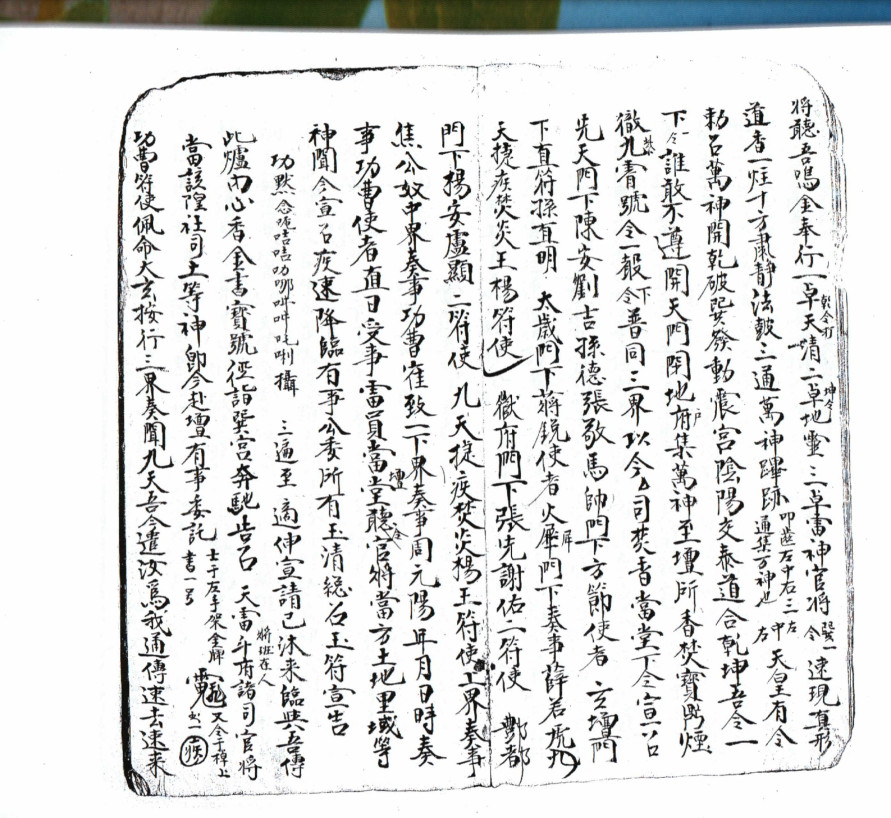 将聽吾鳴金奉行一卓天清二卓地靈三卓雷神官将令速現真形
乾令打 坤令 巽一
道香一炷十方肅静法皷三通萬神蹕跡叩齒左中右三通集万神也天皇有令
左 中 左
勅召萬神開乾破巽發動震宮陰陽交泰道合乾坤吾令一
下誰敢不遵開天門開地府集萬神至壇所香焚寶炉煙
令一 戶
徹九霄號令一報普同三界以今厶司焚香當堂下令宣召
令下
先天門下陳安劉吉孫德張敬馬帥門下方節使者玄壇門
下直符孫直明太歲門下蔣銳使者火犀門下奏事薛君號九
天捷疾焚炎王楊符使嶽府門下張先謝佑二符使酆都
門下揚安盧顯二符使九天捷疾焚炎楊王符使上界奏事
焦公奴中界奏事功曹崔致一下界奏事周元陽年月日時奏
事功曹使者直日受事雷員當堂聽官将當方土地里域等
壇 令
神聞令宣召疾速降臨有事公委所有玉清總召玉符宣告
功默念 攝 三遍至適伸宣請已沐来臨與吾傳
此爐内心香金書寶號徑詣巽宮奔馳告召天雷斗府諸司官将
将班在人
當該隍社司土等神即今赴壇有事委託書一号
士于左手架金牌 又令于棹上
功曹符使佩命大玄按行三界奏聞九天吾今遣汝為我通傳速去速来